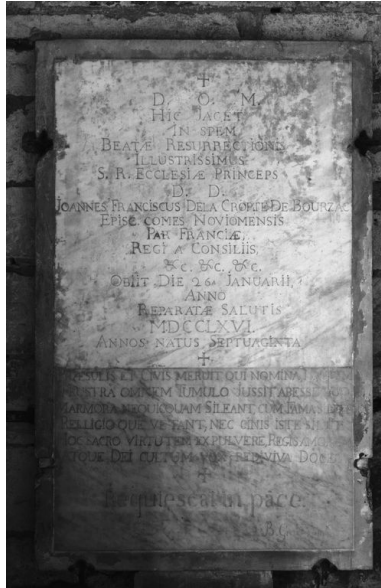 D. O. M.
HIC JACET
IN SPEM
BEATÆ RESURRECTIONIS
ILLUSTRISSIMUS
S. R. ECCLESIÆ PRINCEPS
D. D.
JOANNES FRANCISCUS DE LA CROPTE DE BOURZAC
EPISC. COMES NOVIOMENSIS
PAR FRANCIÆ,
REGI A CONSILIIS,
&c. &c. &c.
OBIIT DIE 26a JANUARII,
ANNO
REPARATÆ SALUTIS
MDCCLXVI.
ANNOS NATUS SEPTUAGINTA
ET CIVIS MERUIT QUI NOMINA
OMNEM TUMULO JUSSIT ABESSE
MARMORA NEQUICQUAM SILEANT, CUM FAMA
RELLIGIO QUE VETANT, NEC CINIS ISTE
HOC SACRO VIRTUTEM EX PULVERE REGIS AMOREM
DEI CULTUM
Requiescat in pace.